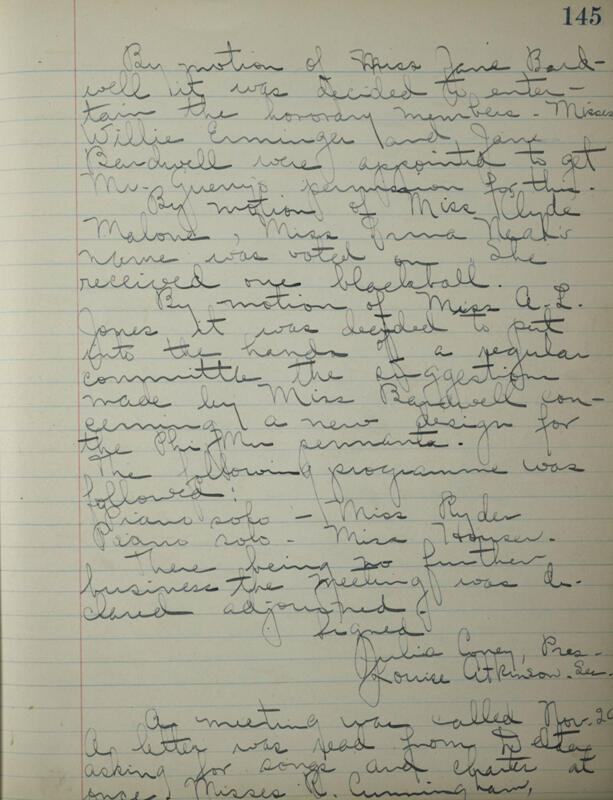 145
By motion of Miss Jane Bard-
well it was decided to enter-
tain the honorary members - Misses
Willie Erminger and Jane
Bardwell were appointed to get
Mr. Guerry's permission for this.
By motion of Miss Clyde
Malone, Miss Irma
name was voted on. She
received one blackball.
By motion of Miss A. L.
Jones it was decided to put
into the hands of a regular
committee the suggestions
made by Miss Bardwell con-
cerning a new design for
the Phi Mu pennants.
The following programme was
followed:
Piano solo - Miss Ryder
Piano solo - Miss Houser.
There being no further
business the meeting was de-
clared adjourned.
Signed
Julia Coney, Pres-
Louise Atkinson. Sec-
A meeting was called Nov. 29
A letter was read from Delta
asking for songs and charter at
once. Misses R. Cunningham,